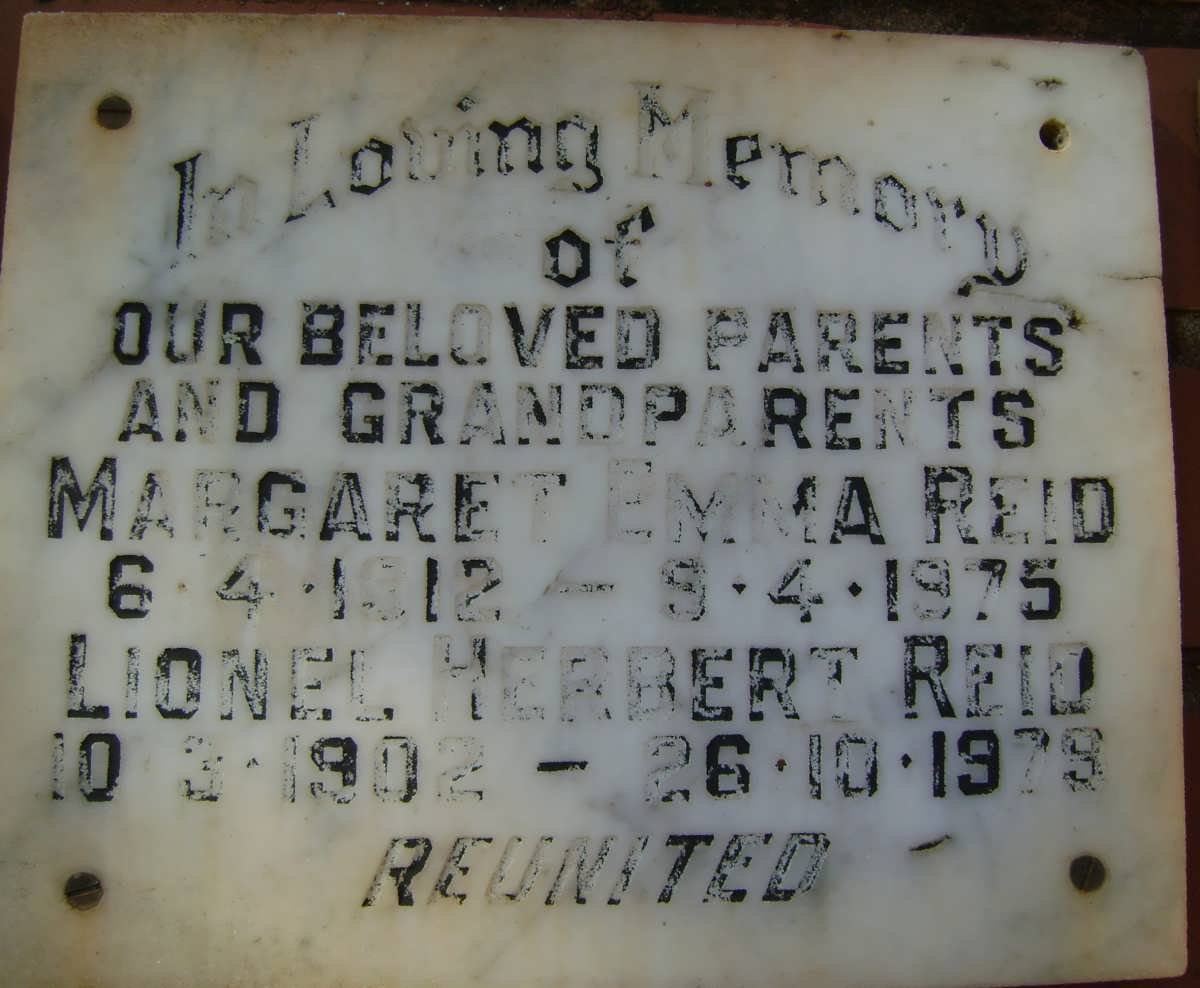 In Loving Memory
of
OUR BELOVED PARENTS
AND GRANDPARENTS
MARGARET EMMA REID
6·4·1912 – 9·4·1975
LIONEL HERBERT REID
10·3·1902 – 26·10·1979
REUNITED